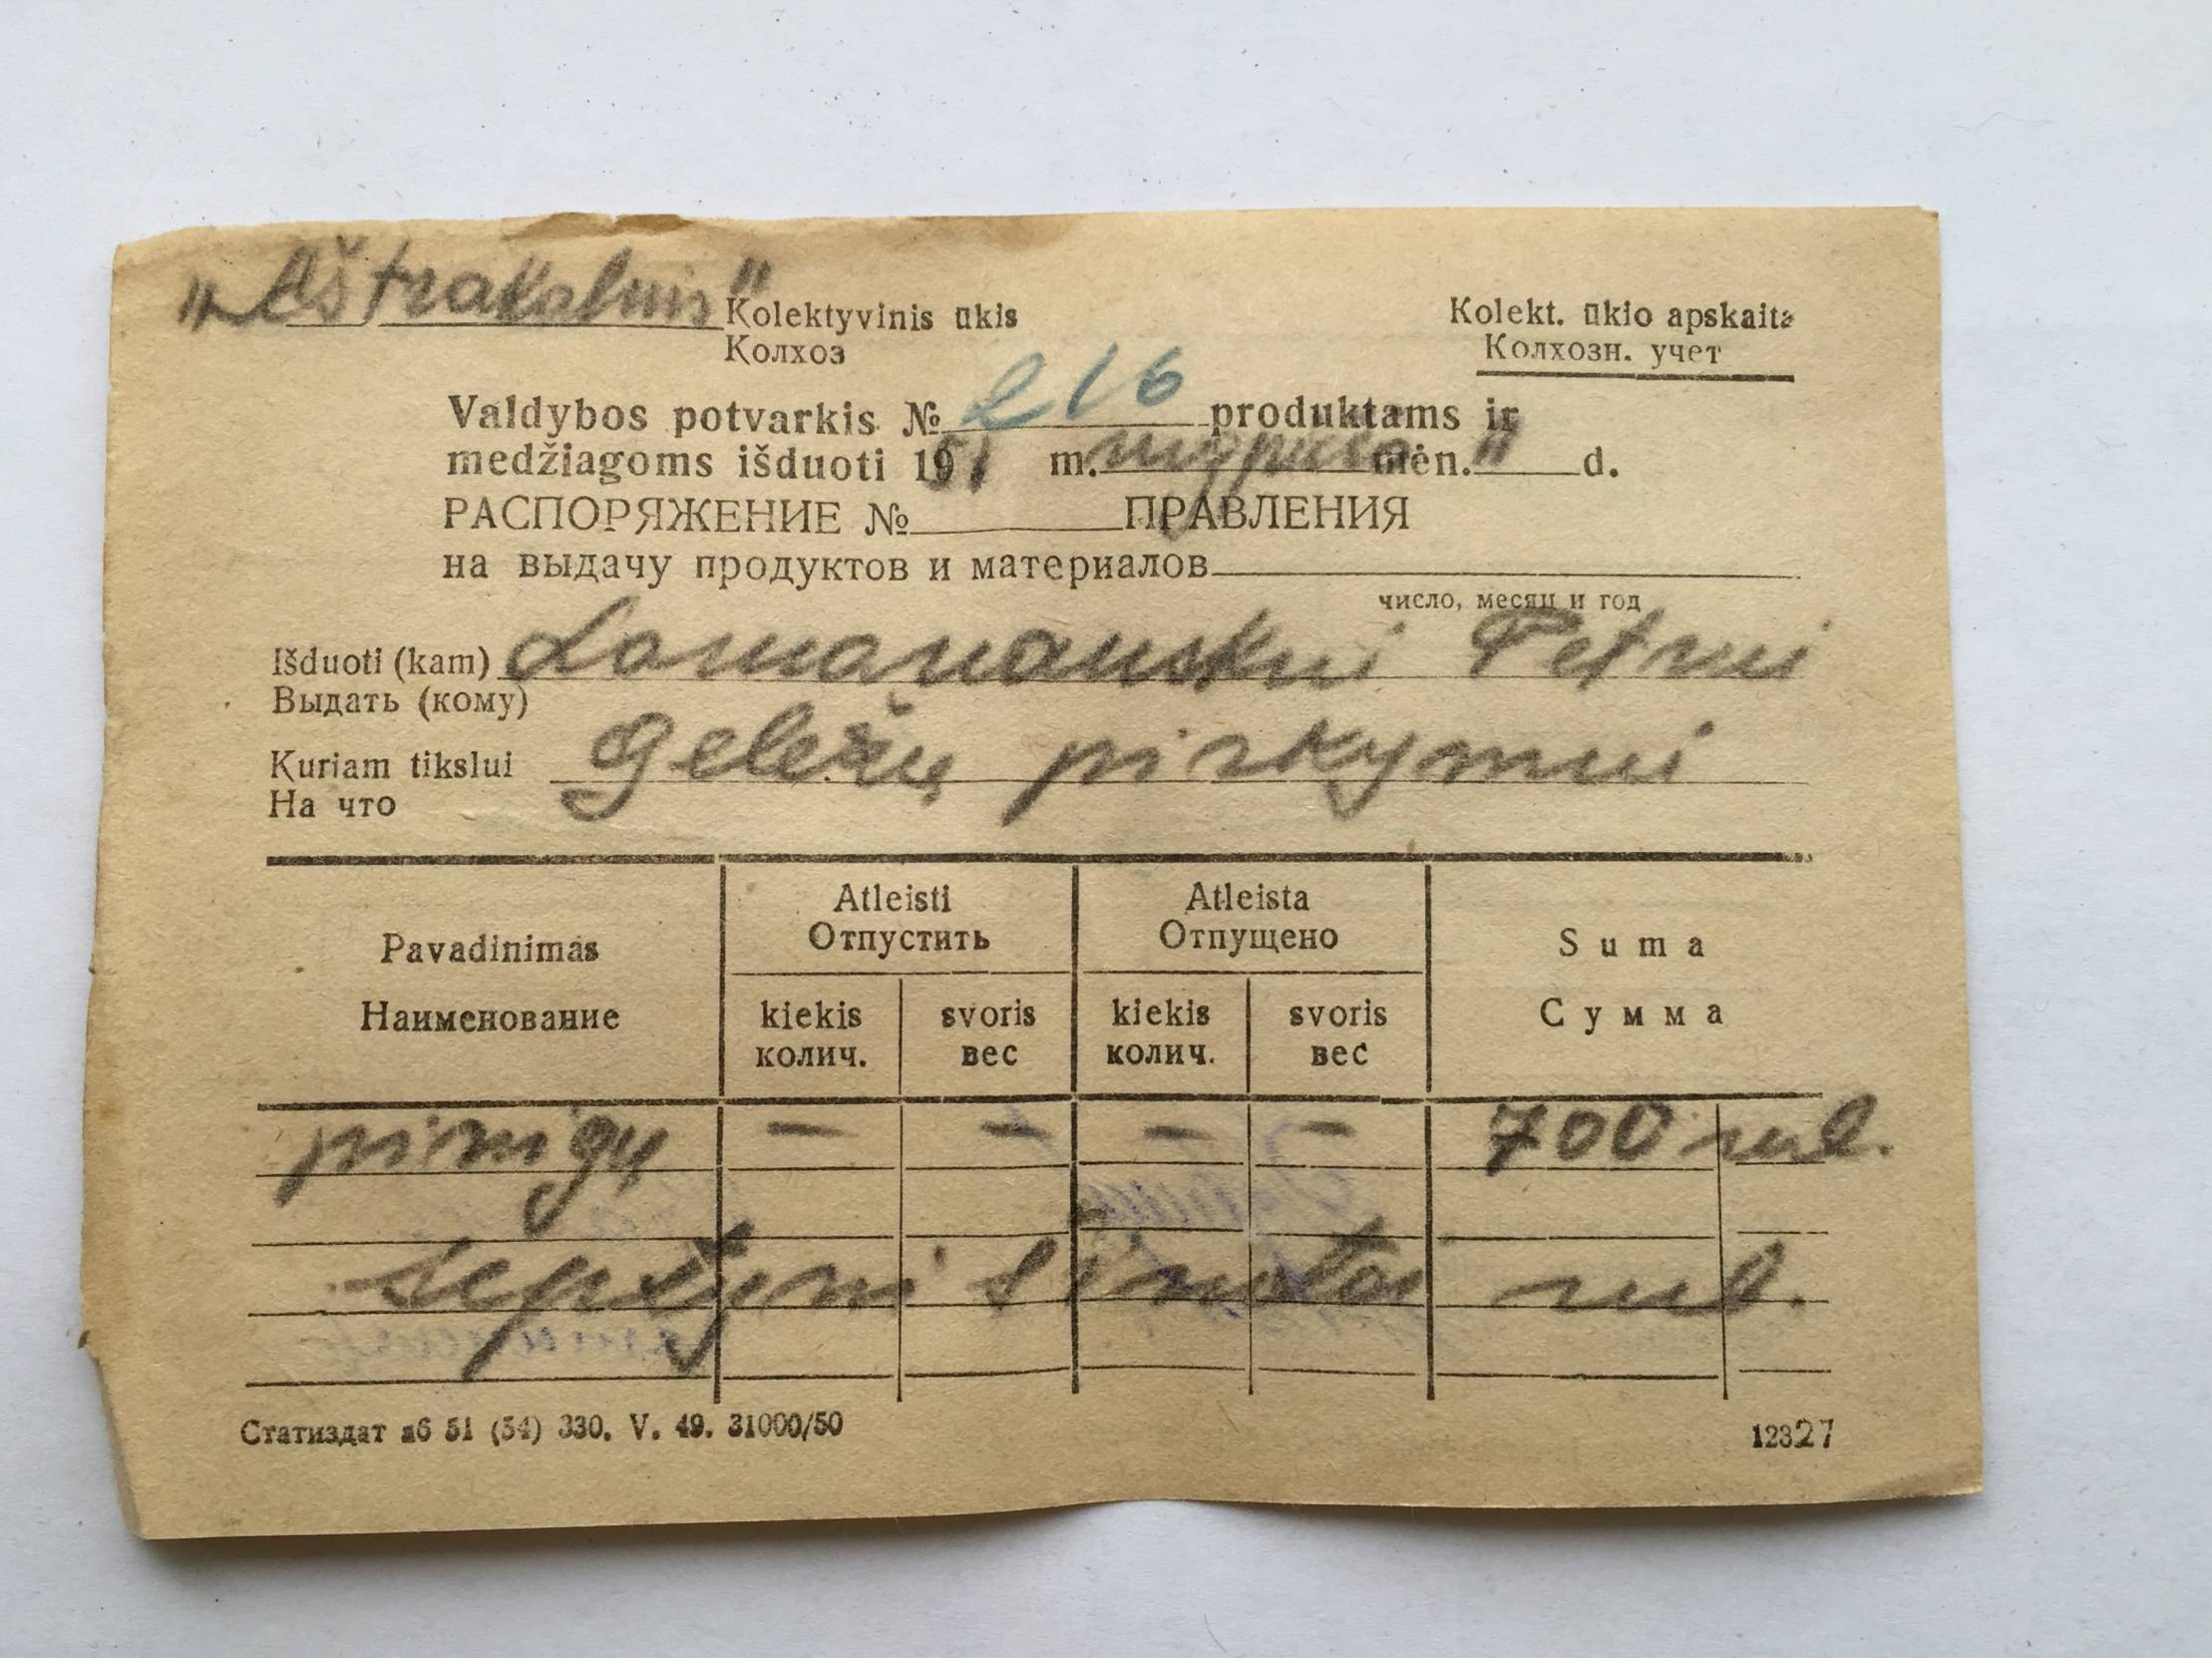 „Aštrakalnis" Kolektyvinis ūkis
Колхоз
Kolekt. ūkio apskaita
Колхозн. учет
Valdybos potvarkis № 216 produktams ir
medžiagoms išduoti 1951 m. rugpiučio mėn. " d.
РАСПОРЯЖЕНИЕ № ПРАВЛЕНИЯ
на выдачу продуктов и материалов
число, месяц и год
Išduoti (kam) Lomanauskui Petrui
Выдать (кому)
Kuriam tikslui Geležų pirkymui
На что
Pavadinimas
Наименование
Atleisti
Отпустить
Atleista
Отпущено
Suma
Сумма
kiekis svoris kiekis svoris
колич. вес колич. вес
pinigų – – – – 700 rub.
septyni šimtai rub.
Статиздат аб 51 (54) 330. V. 49. 31000/50
12327